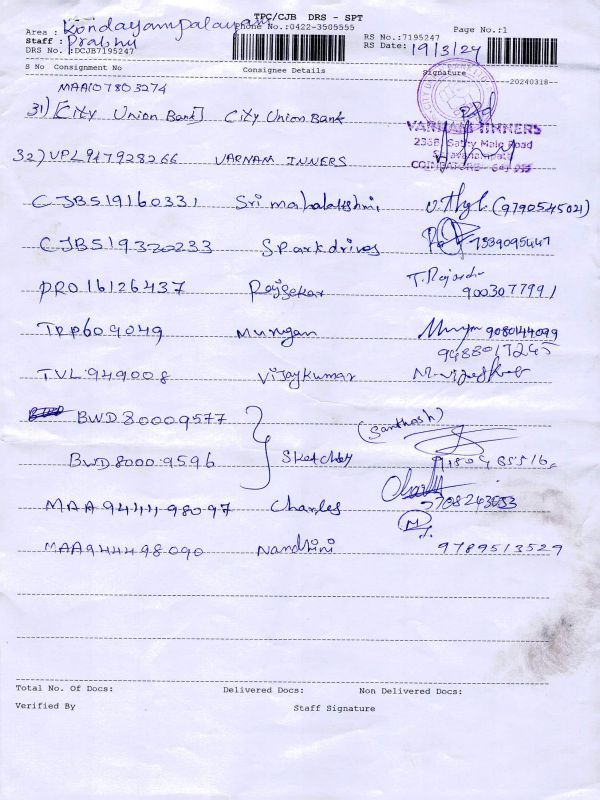 TPC/CJB DRS - SPT
Area : Kondayampalayam Phone No.:0422-3505555 Page No.:1
Staff : Prabhu RS No.:7195247
DRS No. : DCJB7195247 RS Date: 19/3/24
S No Consignment No Consignee Details Signature
20240318
MAA107803274
31) [City Union Bank] City Union Bank
VARNAM INNERS
236B, Sathy Main Road
COIMBATORE - 641 035
32) VPL917928266 VARNAM INNERS
CJB519160331 Sri mahalakshmi (9790545021)
CJB519320233 Spark drives 7339095447
PRO16126437 Rajsekar 9003077991
TRP609049 Murugan 9080144099
9488017245
TVL949008 Vijaykumar
BWD80009577 (Santhosh)
BWD80009596 Sketchby
MAA9444198097 Charles 7708243053
MAA944498090 Nandhini 9789513529
Total No. Of Docs: Delivered Docs: Non Delivered Docs:
Verified By Staff Signature